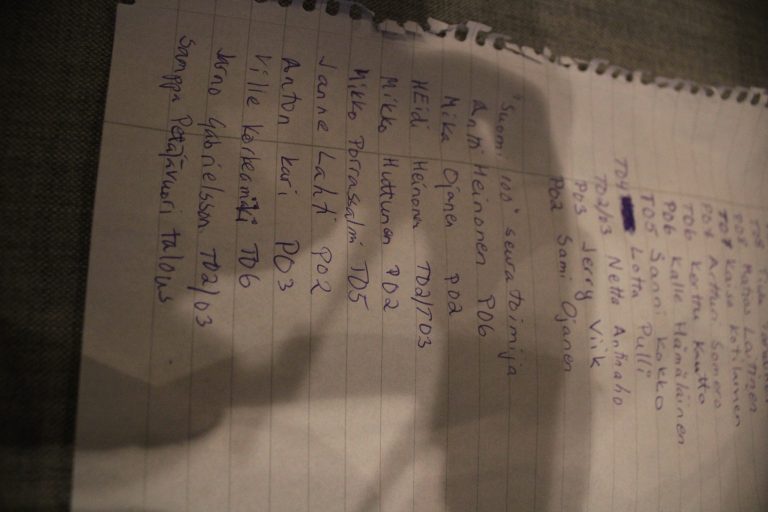 T08 Tiia
P08 Matias Laitinen
T07 Kaisa Kotilainen
P07 Artturi Somero
T06 Kerttu Kuutto
P06 Kalle Hämäläinen
T05 Sanni Kokko
T04 Lotta Pulli
T02/03 Netta Anttnaho
P03 Jerry Viik
P02 Sami Ojanen
"Suomi 100" seuratoimija
Antti Heinonen P06
Mika Ojanen P02
HEidi Heinonen T02/T03
Mikko Huttunen P02
Mikko Porrassalmi T05
Janne Lahti P02
Anton Kari P03
Ville Korkeamäki T06
Jarno Gabrielsson T02/03
Samppa Petäjävuori talous